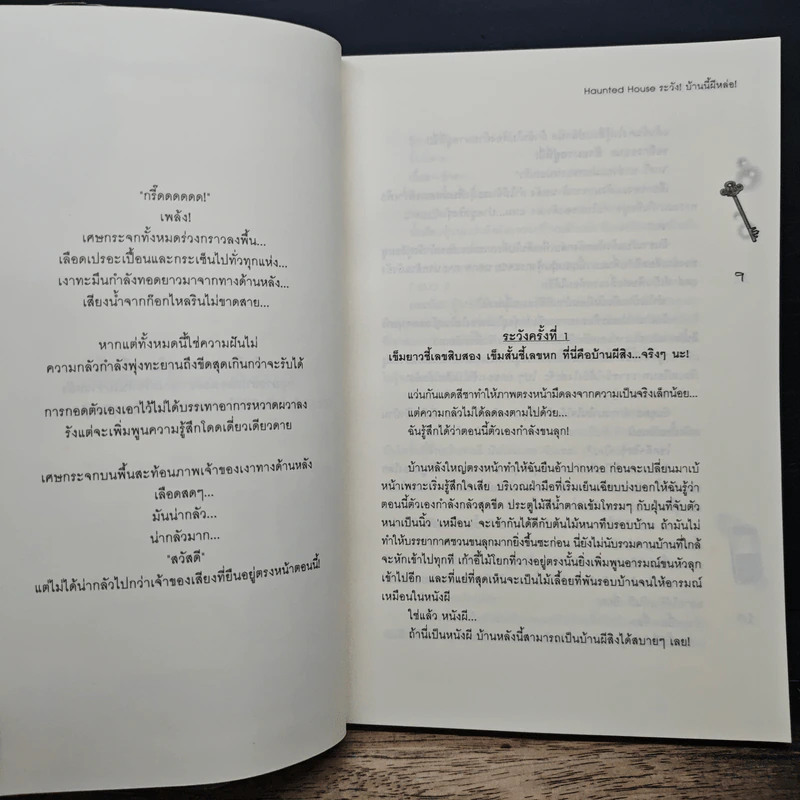 "กรี๊ดดดดดด!"
เพล้ง!
เศษกระจกทั้งหมดร่วงกราวลงพื้น...
เลือดเปรอะเปื้อนและกระเซ็นไปทั่วทุกแห่ง...
เงาทะมึนกำลังทอดยาวมาจากทางด้านหลัง...
เสียงน้ำจากก๊อกไหลรินไม่ขาดสาย...
หากแต่ทั้งหมดนี้ใช่ความฝันไม่
ความกลัวกำลังพุ่งทะยานถึงขีดสุดเกินกว่าจะรับได้
การกอดตัวเองเอาไว้ไม่ได้บรรเทาอาการหวาดผวาลง
รังแต่จะเพิ่มพูนความรู้สึกโดดเดี่ยวเดียวดาย
เศษกระจกบนพื้นสะท้อนภาพเจ้าของเงาทางด้านหลัง
เลือดสดๆ...
มันน่ากลัว...
น่ากลัวมาก...
"สวัสดี"
แต่ไม่ได้น่ากลัวไปกว่าเจ้าของเสียงที่ยืนอยู่ตรงหน้าตอนนี้!
Haunted House ระวัง! บ้านนี้ผีหล่อ!
ๆ
ระวังครั้งที่ 1
เข็มยาวชี้เลขสิบสอง เข็มสั้นชี้เลขหก ที่นี่คือบ้านผีสิง...จริงๆ นะ!
แว่นกันแดดสีชาทำให้ภาพตรงหน้ามืดลงจากความเป็นจริงเล็กน้อย...
แต่ความกลัวไม่ได้ลดลงตามไปด้วย...
ฉันรู้สึกได้ว่าตอนนี้ตัวเองกำลังขนลุก!
บ้านหลังใหญ่ตรงหน้าทำให้ฉันยืนอ้าปากหวอ ก่อนจะเปลี่ยนมาเบ้
หน้าเพราะเริ่มรู้สึกใจเสีย บริเวณฝ่ามือที่เริ่มเย็นเฉียบบ่งบอกให้ฉันรู้ว่า
ตอนนี้ตัวเองกำลังกลัวสุดขีด ประตูไม้สีน้ำตาลเข้มโทรมๆ กับฝุ่นที่จับตัว
หนาเป็นนิ้ว 'เหมือน' จะเข้ากันได้ดีกับต้นไม้หนาทึบรอบบ้าน ถ้ามันไม่
ทำให้บรรยากาศชวนขนลุกมากยิ่งขึ้นซะก่อน นี่ยังไม่นับรวมคานบ้านที่ใกล้
จะหักเข้าไปทุกที เก้าอี้ไม้โยกที่วางอยู่ตรงนั้นยิ่งเพิ่มพูนอารมณ์ขนหัวลุก
เข้าไปอีก และที่แย่ที่สุดเห็นจะเป็นไม้เลื้อยที่พันรอบบ้านจนให้อารมณ์
เหมือนในหนังผี
ใช่แล้ว หนังผี...
ถ้านี่เป็นหนังผี บ้านหลังนี้สามารถเป็นบ้านผีสิงได้สบายๆ เลย!